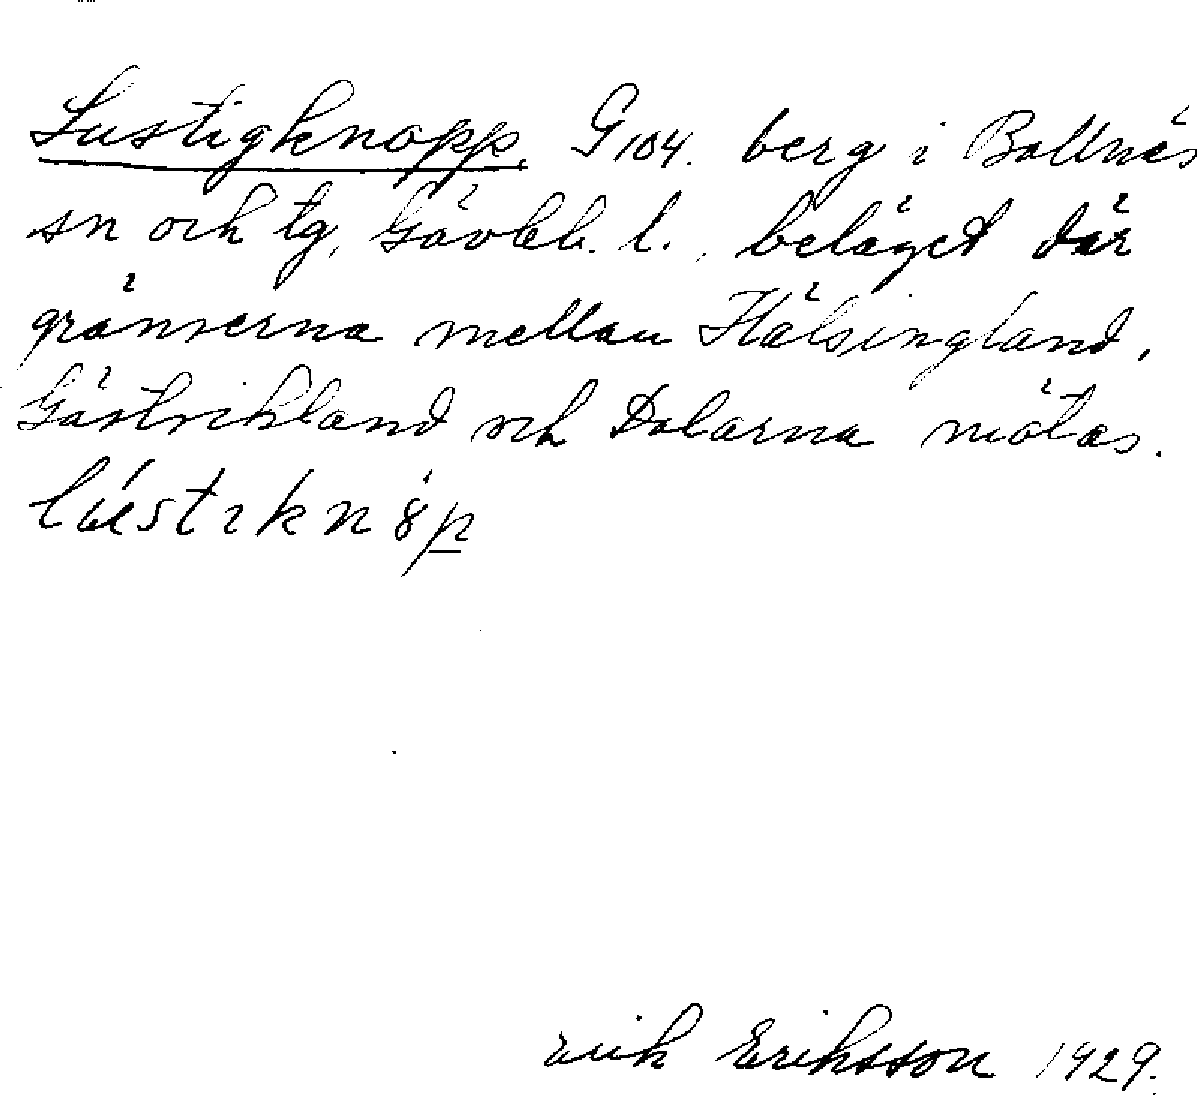 Lustigknopp. G 104. berg i Bollnäs
sn och tg, Gävleb. l., beläget där
gränserna mellan Hälsingland,
Gästrikland och Dalarna mötas.
Erik Eriksson 1929.